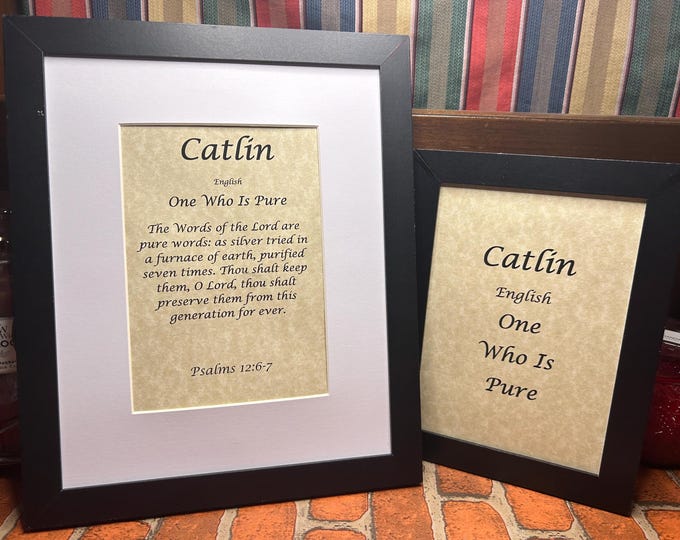 Catlin
English
One Who Is Pure
The Words of the Lord are
pure words: as silver tried in
a furnace of earth, purified
seven times. Thou shalt keep
them, O Lord, thou shalt
preserve them from this
generation for ever.
Psalms 12:6-7
Catlin
English
One
Who Is
Pure